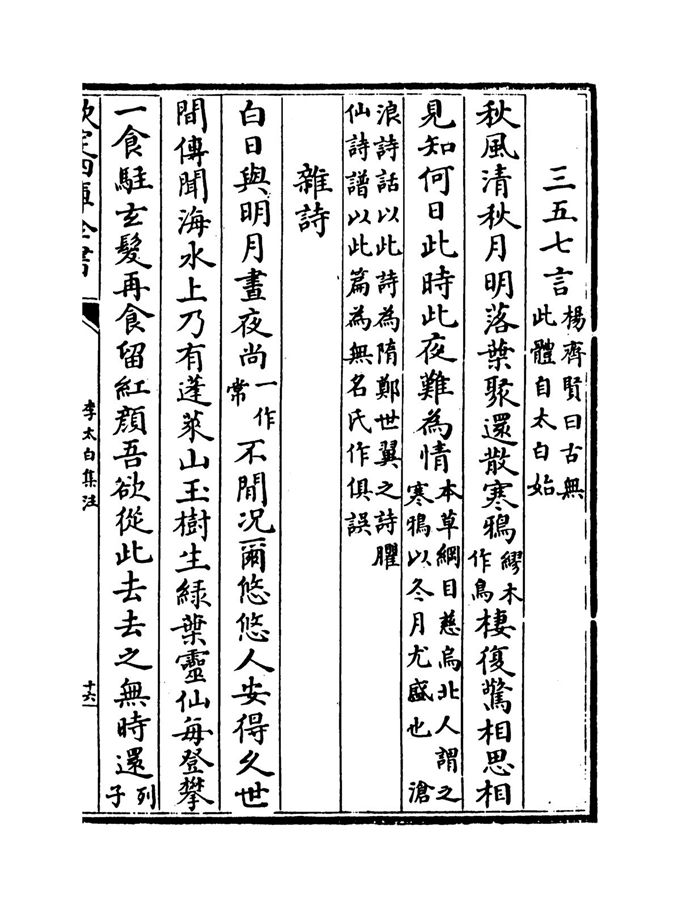 三五七言楊齊賢曰古無
此體自太白始
秋風清秋月明落葉聚還散寒鴉繆木
作烏棲復驚相思相
見知何日此時此夜難為情本草綱目慈烏北人謂之
寒鴉以冬月尤盛也 滄
浪詩話以此詩為隋鄭世翼之詩臞
仙詩譜以此篇為無名氏作俱誤
雜詩
白日與明月晝夜尚一作
常不閒况爾悠悠人安得久世
間傳聞海水上乃有蓬萊山玉樹生緑葉靈仙每登攀
一食駐玄髮再食留紅顔吾欲從此去去之無時還列
子
欽定四庫全書
李太白集注
十六